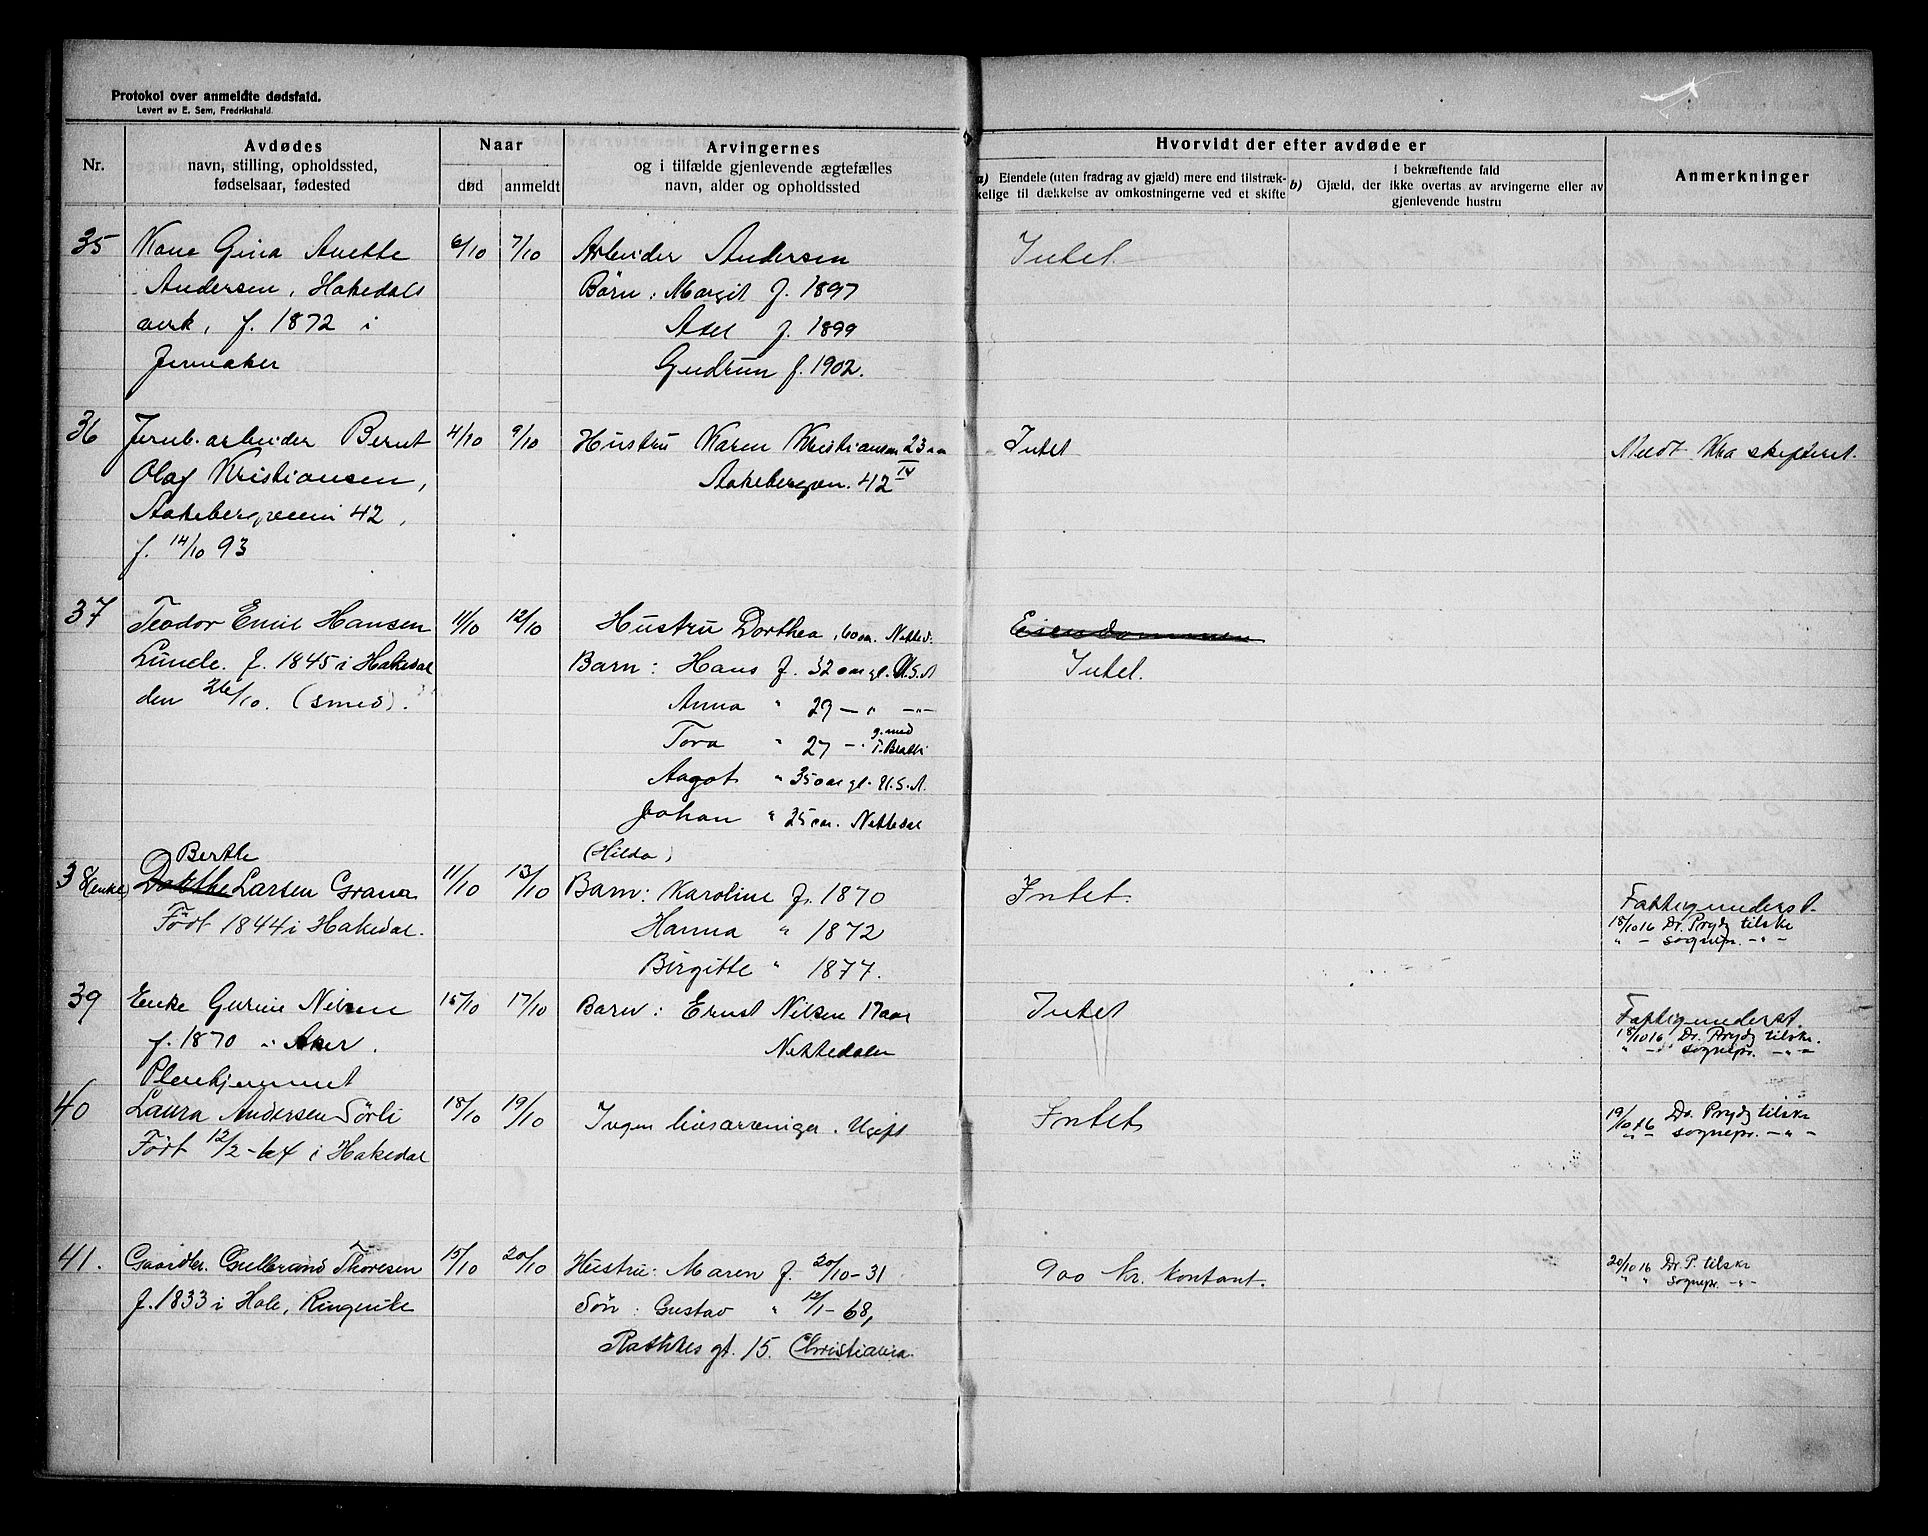 Protokol over anmeldte dødsfald.
Levert av E. Sem, Fredrikshald.
Nr.
Avdødes
navn, stilling, opholdssted,
fødselsaar, fødested
Naar
død
anmeldt
Arvingernes
og i tilfælde gjenlevende ægtefælles
navn, alder og opholdssted
Hvorvidt der efter avdøde er
a) Eiendele (uten fradrag av gjæld) mere end tilstræk-
kelige til dækkelse av omkostningerne ved et skifte
i bekræftende fald
b) Gjæld, der ikke overtas av arvingerne eller av
gjenlevende hustru
Anmerkninger
35
Kone Gina Anette
Andersen, Hakedals
verk, f. 1872 i
Jevnaker
6/10
7/10
Arbeider Andersen
Børn: Margit f. 1897
Axel f. 1899
Gudrun f. 1902.
Intet
36
Jernb. arbeider Bernt
Olaf Kristiansen,
Aakebergveien 42,
f. 14/10 93
4/10
9/10
Hustru Karen Kristiansen 23 aar
Aakebergvn. 42 IV
Intet
Medt Kra skifteret.
37
Teodor Emil Hansen
Lunde. f. 1845 i Hakedal
den 26/10. (smed).
11/10
12/10
Hustru Dorthea, 60 aar. Nitted.
Barn: Hans f. 32 aar gl. U.S.A
Anna " 29 — " —"—
Tora " 27 — " g. med
T. Bratli
Aagot " 35 aar gl. U.S.A.
Johan " 25 aar. Nittedal
Eiendommen
Intet.
38 (enke)
Berthe
Dorthe Larsen Grana
Født 1844 i Hakedal.
11/10
13/10
(Hilda)
Barn: Karoline f. 1870
Hanna " 1872
Birgitte " 1877.
Intet.
Fattigunderst.
18/10 16 Dr. Prydz tilskr
" — sognepr. —"—
39
Enke Gurine Nilsen
f. 1870 i Aker.
Pleiehjemmet
15/10
17/10
Barn: Ernst Nilsen 17 aar
Nittedalen
Intet
Fattigunderst.
18/10 16 Dr. Prydz tilskr.
" — " sognepr. —"—
40
Laura Andersen Sörli
Født 12/2-64 i Hakedal
18/10
19/10
Ingen livsarvinger. Ugift
Intet
19/10 16 Dr. Prydz tilskr
" " sognepr. —"—
41.
Gaardbr. Gulbrand Thoresen
f. 1833 i Hole, Ringerike
15/10
20/10
Hustru: Maren f. 20/10-31
Søn: Gustav " 12/1-68,
Rathkes gt. 15. Christiania.
900 kr. kontant.
20/10 16 Dr. P. tilskr
" " sognepr. —"—